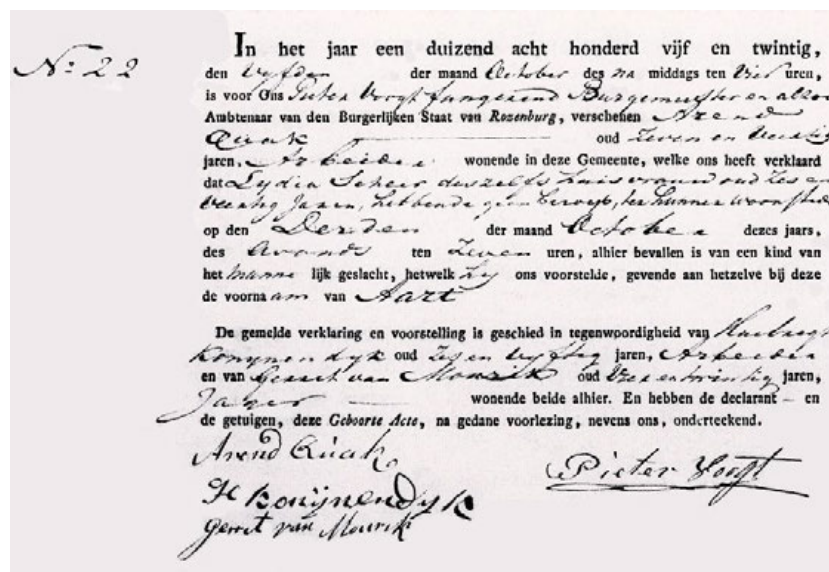 No: 22
In het jaar een duizend acht honderd vijf en twintig,
den Vyfden der maand October des na middags ten Vier uren,
is voor Ons Pieter Voogt fungerend Burgemeester en
Ambtenaar van den Burgerlijken Staat van Rosenburg, verschenen Arend
Quak oud Zeven en Veertig
jaren, Arbeider wonende in deze Gemeente, welke ons heeft verklaard
dat Lydia deszelfs huisvrouw oud Zes en
Veertig Jaren, hebbende geen beroep, ter hunner woonstede
op den Derden der maand October dezes jaars,
des Avonds ten Zeven uren, alhier bevallen is van een kind van
het manne lijk geslacht, hetwelk hy ons voorstelde, gevende aan hetzelve bij deze
de voornaam van Aart
De gemelde verklaring en voorstelling is geschied in tegenwoordigheid van
Konynendyk oud Zes en vyftig jaren, Arbeider
en van Gerret van Mourik oud Vier en twintig jaren,
Jager wonende beide alhier. En hebben de declarant – en
de getuigen, deze Geboorte Acte, na gedane voorlezing, nevens ons, onderteekend.
Arend Quak
Pieter Voogt
H Konijnendyk
Gerret van Mourik